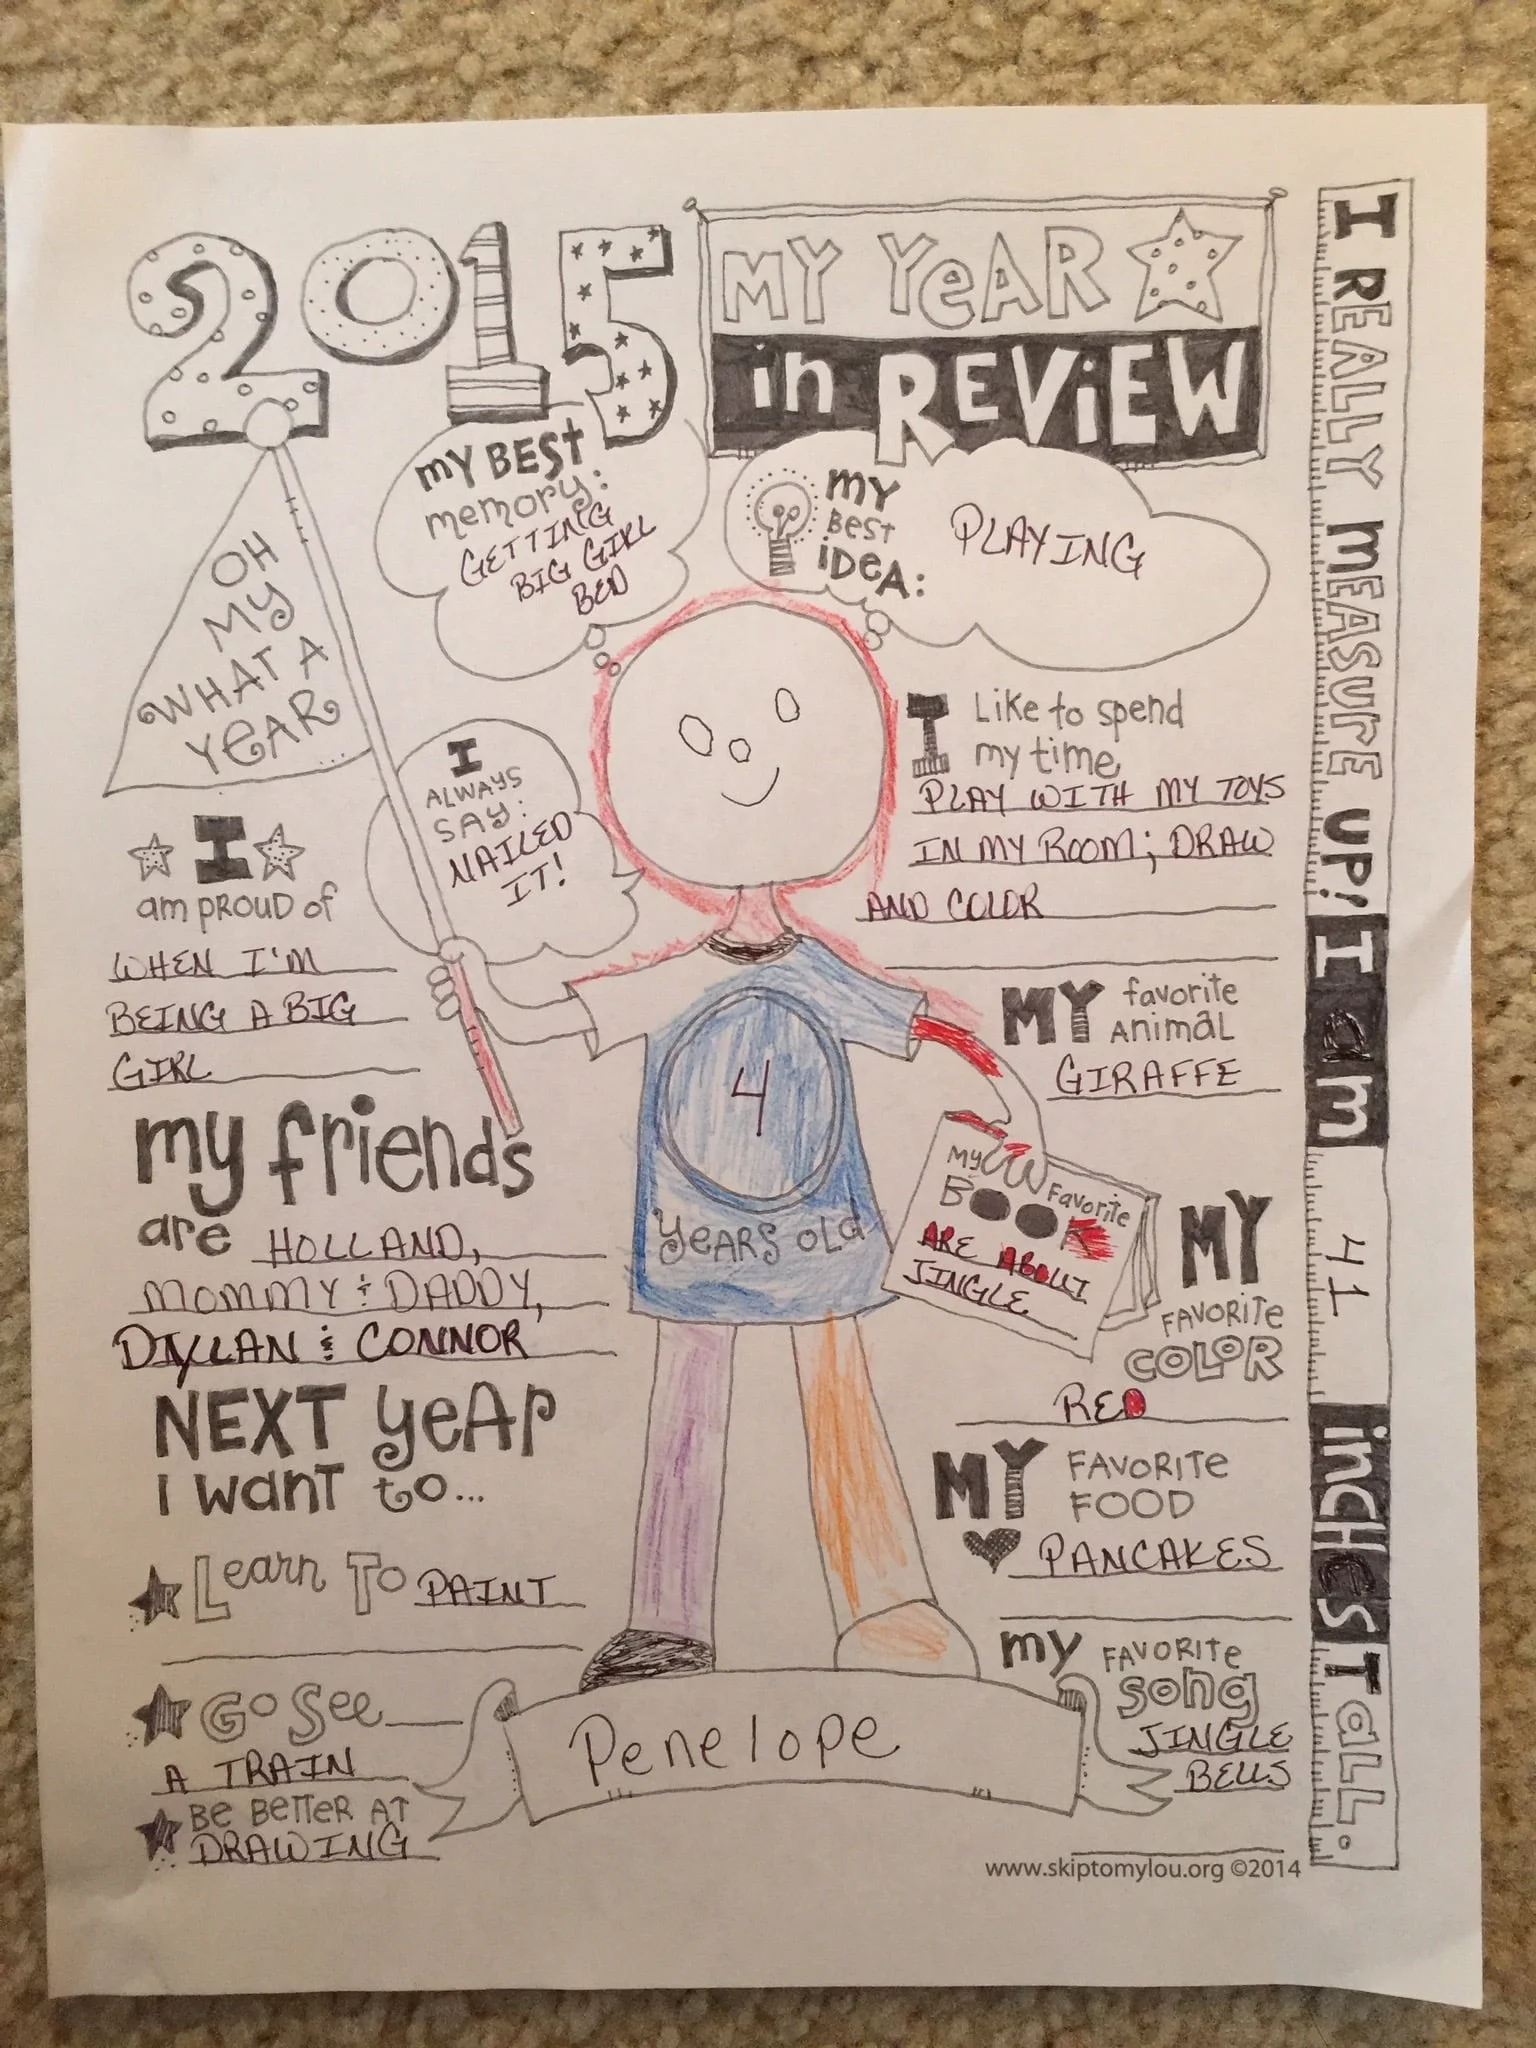 2015
MY YEAR
in REVIEW
OH
MY
WHAT A
YEAR
MY BEST
memory:
GETTING
BIG GIRL
BED
MY
BEST
iDEA:
PLAYING
I
ALWAYS
SAY:
NAILED
IT!
I Like to spend
my time
PLAY WITH MY TOYS
IN MY ROOM; DRAW
AND COLOR
I
am PROUD of
WHEN I'M
BEING A BIG
GIRL
MY favorite
ANiMAL
GIRAFFE
my friends
are HOLLAND,
MOMMY & DADDY,
DYLLAN & CONNOR
4
YEARS OLd
MY Favorite
BOOK
ARE ABOUT
JINGLE
MY
FAVORiTE
COLOR
RED
NEXT YeAR
I WanT to...
Learn To PAINT
Go See
A TRAIN
Be BeTTeR AT
DRAWING
MY FAVORiTe
FOOD
PANCAKES
my FAVORiTe
Song
JINGLE
BELLS
Penelope
I REALLY MEASURE UP! I am 41 inCHES TaLL.
www.skiptomylou.org ©2014